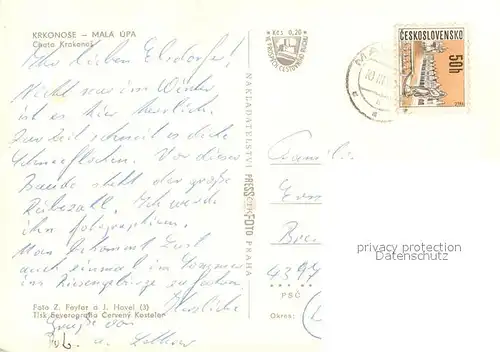 KRKONOŠE – MALÁ ÚPA
Chata Krakonoš
Ihr lieben Elsdorfer!
Nicht nur im Winter
ist es hier herrlich.
Zur Zeit schneit es dicke
Schneeflocken. Vor dieser
Baude steht der große
Rübezahl. Ich werde
ihn fotographieren.
Man bekommt Lust
auch einmal im Sommer
ins Riesengebirge zu fahren.
Herzliche
Grüße von
u.
Foto Z. Feyfar a J. Havel (3)
Tisk Severografia Červený Kostelec
Kčs 0,20
NAKLADATELSTVÍ PRESSFOTO PRAHA
ČESKOSLOVENSKO
50h
MA
Familie
Bre
4397
PSČ
Okres:
privacy protection
Datenschutz